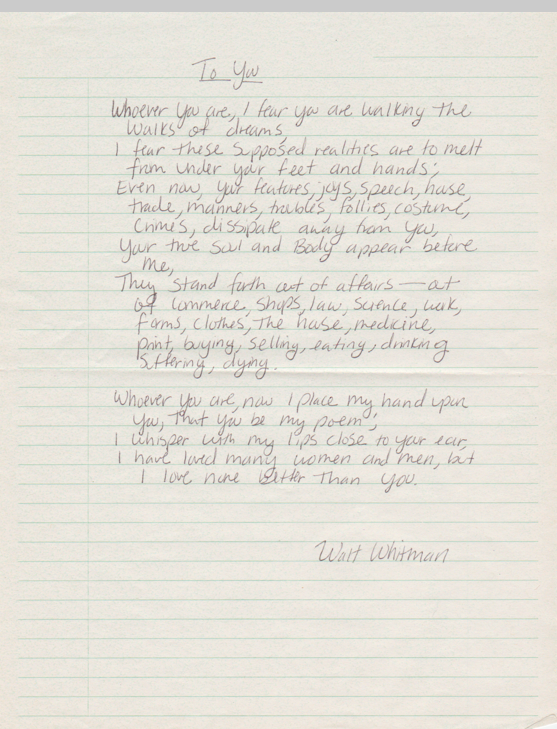 To You
Whoever you are, I fear you are walking the
walks of dreams,
I fear these supposed realities are to melt
from under your feet and hands;
Even now, your features, joys, speech, house,
trade, manners, troubles, follies, costume,
crimes, dissipate away from you,
Your true Soul and Body appear before
me,
They stand forth out of affairs—out
of commerce, shops, law, science, work,
farms, clothes, the house, medicine,
print, buying, selling, eating, drinking
suffering, dying.
Whoever you are, now I place my hand upon
you, that you be my poem;
I whisper with my lips close to your ear,
I have loved many women and men, but
I love none better than you.
Walt Whitman